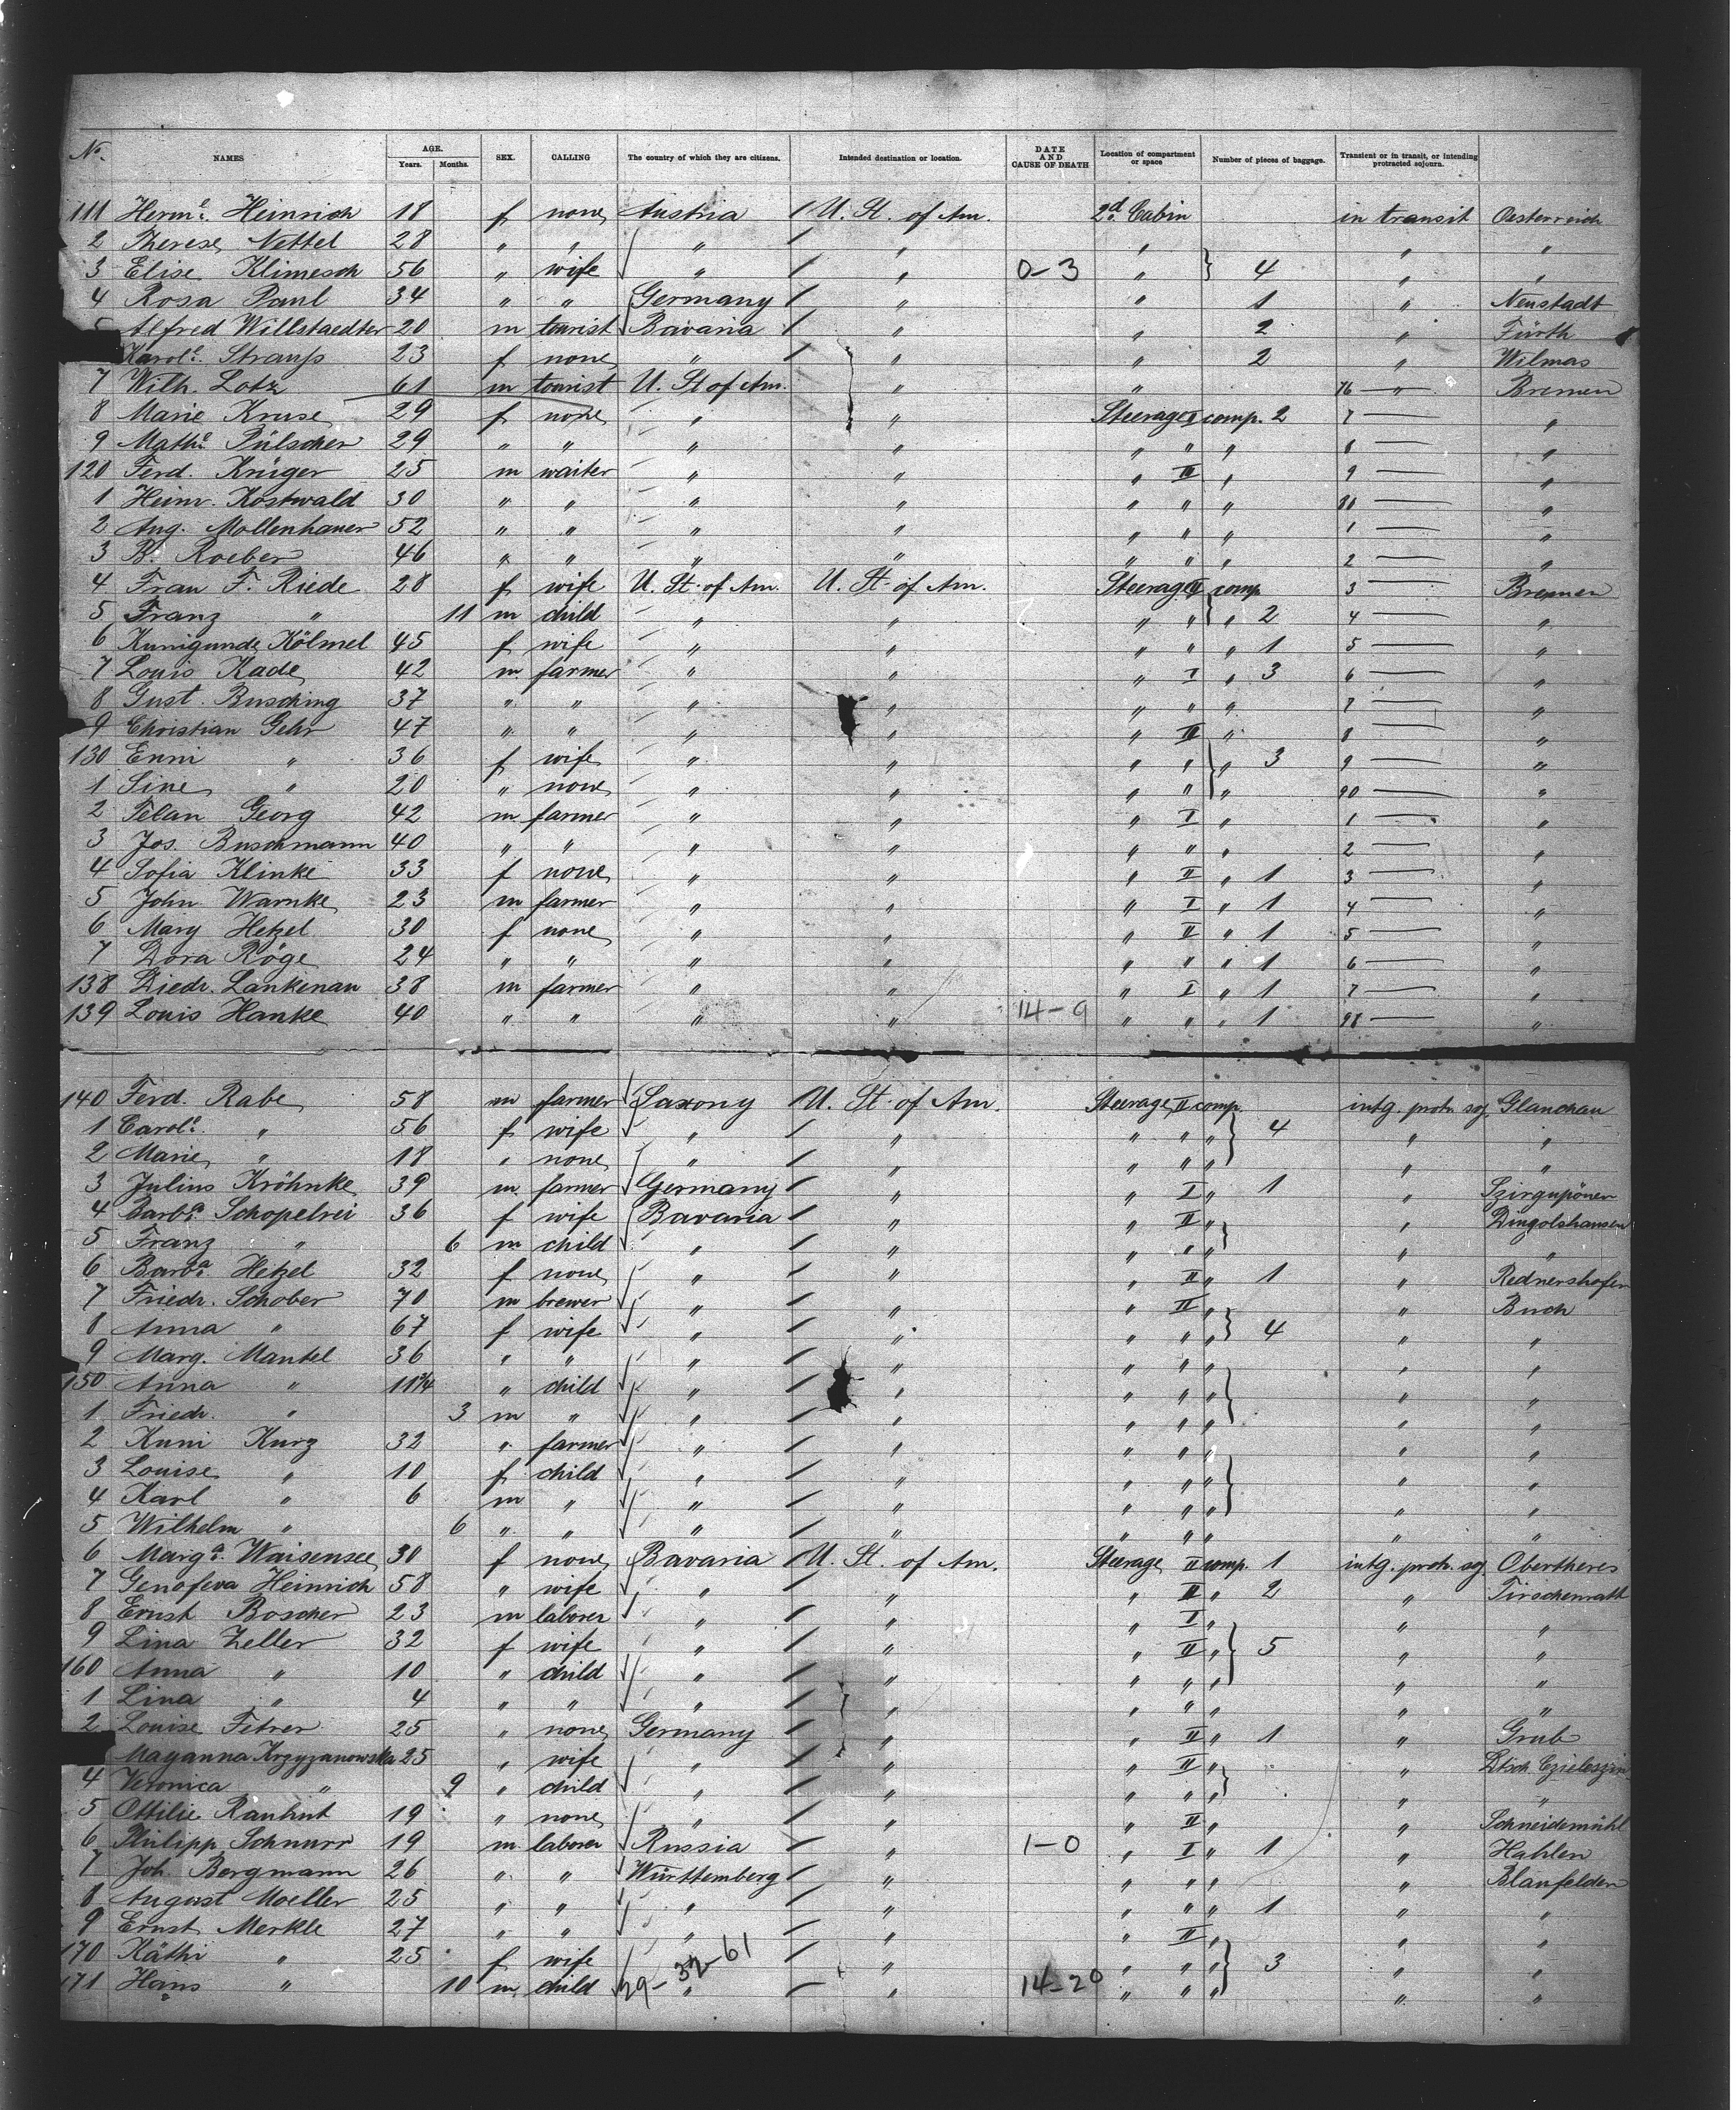 No. NAMES AGE. Years. Months. SEX. CALLING The country of which they are citizens. Intended destination or location. DATE AND CAUSE OF DEATH Location of compartment or space Number of pieces of baggage. Transient or in transit, or intending protracted sojourn.
111 Herme. Heinrich 18 f none Austria / U. St. of Am. 2d. Cabin in transit Oesterreich
2 Therese Nettel 28 " " " / " " " "
3 Elise Klimesch 56 " wife " / " 0-3 " } 4 " "
4 Rosa Paul 34 " " Germany / " " 1 " Neustadt
5 Alfred Willstaedter 20 m tourist Bavaria / " " 2 " Fürth
Karole. Strauss 23 f none " / " " 2 " Wilmas
7 Wilh. Lotz 61 m tourist U. St of Am. " " 76 — " — Bremen
8 Marie Kruse 29 f none " " Steerage II comp. 2 7 — "
9 Mathe. Pülscher 29 " " " " " " " 8 — "
120 Ferd. Krüger 25 m waiter " " " III " 9 — "
1 Heinr. Kostwald 30 " " " " " " " 80 — "
2 Aug. Mollenhauer 52 " " " " " " " 1 — "
3 B. Roeber 46 " " " " " " " 2 — "
4 Frau F. Riede 28 f wife U. St. of Am. U. St. of Am. Steerage II comp 3 — Bremen
5 Franz " 11 m child " " " " } " 2 4 — "
6 Kunigunde Kölmel 45 f wife " " " " " 1 5 — "
7 Louis Kade 42 m farmer " " " I " 3 6 — "
8 Gust. Busching 37 " " " " " " " 7 — "
9 Christian Gehr 47 " " " " " III " 8 — "
130 Enni " 36 f wife " " " " } " 3 9 — "
1 Line " 20 " none " " " " " 90 — "
2 Felan Georg 42 m farmer " " " I " 1 — "
3 Jos. Buschmann 40 " " " " " " " 2 — "
4 Sofia Klinke 33 f none " " " II " 1 3 — "
5 John Warnke 23 m farmer " " " I " 1 4 — "
6 Mary Hetzel 30 f none " " " II " 1 5 — "
7 Dora Röge 24 " " " " " " " 1 6 — "
138 Diedr. Lankenau 38 m farmer " " " I " 1 7 — "
139 Louis Hanke 40 " " " " 14-9 " " " 1 98 — "
140 Ferd. Rabe 58 m farmer Saxony U. St. of Am. Steerage II comp. intg. protr. soj. Glauchau
1 Carole. " 56 f wife " / " " " " } 4 " "
2 Marie " 18 " none " / " " " " " "
3 Julius Kröhnke 39 m farmer Germany / " " I " 1 " Szirgupönen
4 Barba. Schopelrei 36 f wife Bavaria / " " II " " Dingolshausen
5 Franz " 6 m child " / " " " " } " "
6 Barba. Hetzel 32 f none " / " " II " 1 " Rednershofen
7 Friedr. Schober 70 m brewer " / " " III " " Buch
8 Anna " 67 f wife " / " " " " } 4 " "
9 Marg. Mantel 36 " " " / " " " " " "
150 Anna " 11 3/4 " child " / " " " " } " "
1 Friedr. " 3 m " " / " " " " " "
2 Kuni Kurz 32 " farmer " / " " " " " "
3 Louise " 10 f child " / " " " " } " "
4 Karl " 6 m " " / " " " " " "
5 Wilhelm " 6 " " " / " " " " " "
6 Marga. Waisensee 30 f none Bavaria / U. St. of Am. Steerage II comp. 1 intg. protr. soj. Obertheres
7 Genofeva Heinrich 58 " wife " / " " II " 2 " Tirschenrath
8 Ernst Boscher 23 m laborer " / " " I " " "
9 Lina Zeller 32 f wife " / " " II " } 5 " "
160 Anna " 10 " child " / " " " " " "
1 Lina " 4 " " " / " " " " " "
2 Louise Fetrer 25 " none Germany / " " II " 1 " Grub
Mayanna Krzyzanowska 25 " wife " / " " II " " Dtsch. Czieleszin
4 Veronica " 9 " child " / " " " " } " "
5 Ottilie Rauhut 19 " none " / " " II " " Schneidemühl
6 Philipp Schnurr 19 m laborer Russia / " 1-0 " I " 1 " Hahlen
7 Joh. Bergmann 26 " " Württemberg / " " " " " Blaufelden
8 August Moeller 25 " " " / " " " " 1 " "
9 Ernst Merkle 27 " " " / " " II " " "
170 Käthi " 25 f wife " / " " " " } 3 " "
171 Hans " 10 m child 29-32-61 " / " 14-20 " " " " "